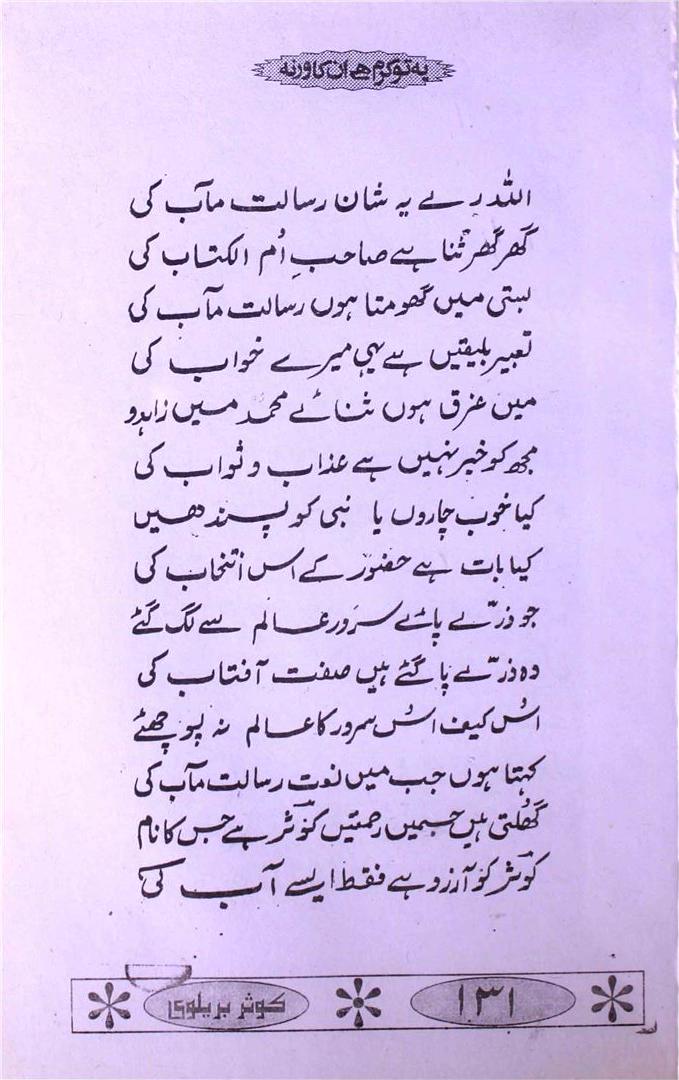 یہ تو کرم ہے ان کا ورنہ
اللہ رے یہ شان رسالت مآب کی
گھر گھر ثنا ہے صاحبِ اُم الکتاب کی
بستی میں گھومتا ہوں رسالت مآب کی
تعبیر بلیقیں ہے یہی میرے خواب کی
میں غرق ہوں ثنائے محمدؐ میں زاہدو
مجھ کو خبر نہیں ہے عذاب و ثواب کی
کیا خوب چاروں یا نبی کو پسند ھیں
کیا بات ہے حضور کے اس انتخاب کی
جو ذرّے پائے سرَورِ عالم سے لگ گئے
وہ ذرّے پا گئے ہیں صفت آفتاب کی
اُس کیف اُس سرور کا عالم نہ پوچھئے
کہتا ہوں جب میں نعت رسالت مآب کی
گھُلتی ہیں جسمیں رحمتیں کوثر ہے جس کا نام
کوثر کو آرزو ہے فقط ایسے آب کی
۱۳۱
کوثر بریلوی